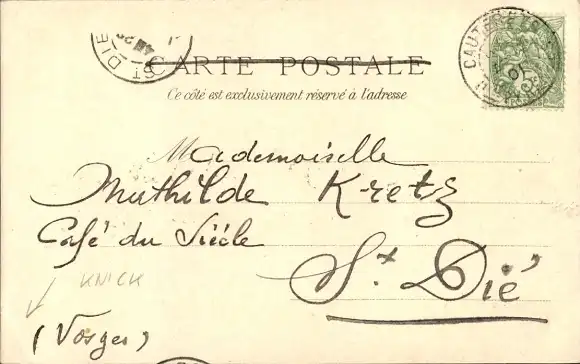 ST DIE
CAUTERETS
01
CARTE POSTALE
Ce côté est exclusivement réservé à l'adresse
Mademoiselle
Mathilde Kretz
Café du Siécle
St Dié
KNICK
(Vosges)